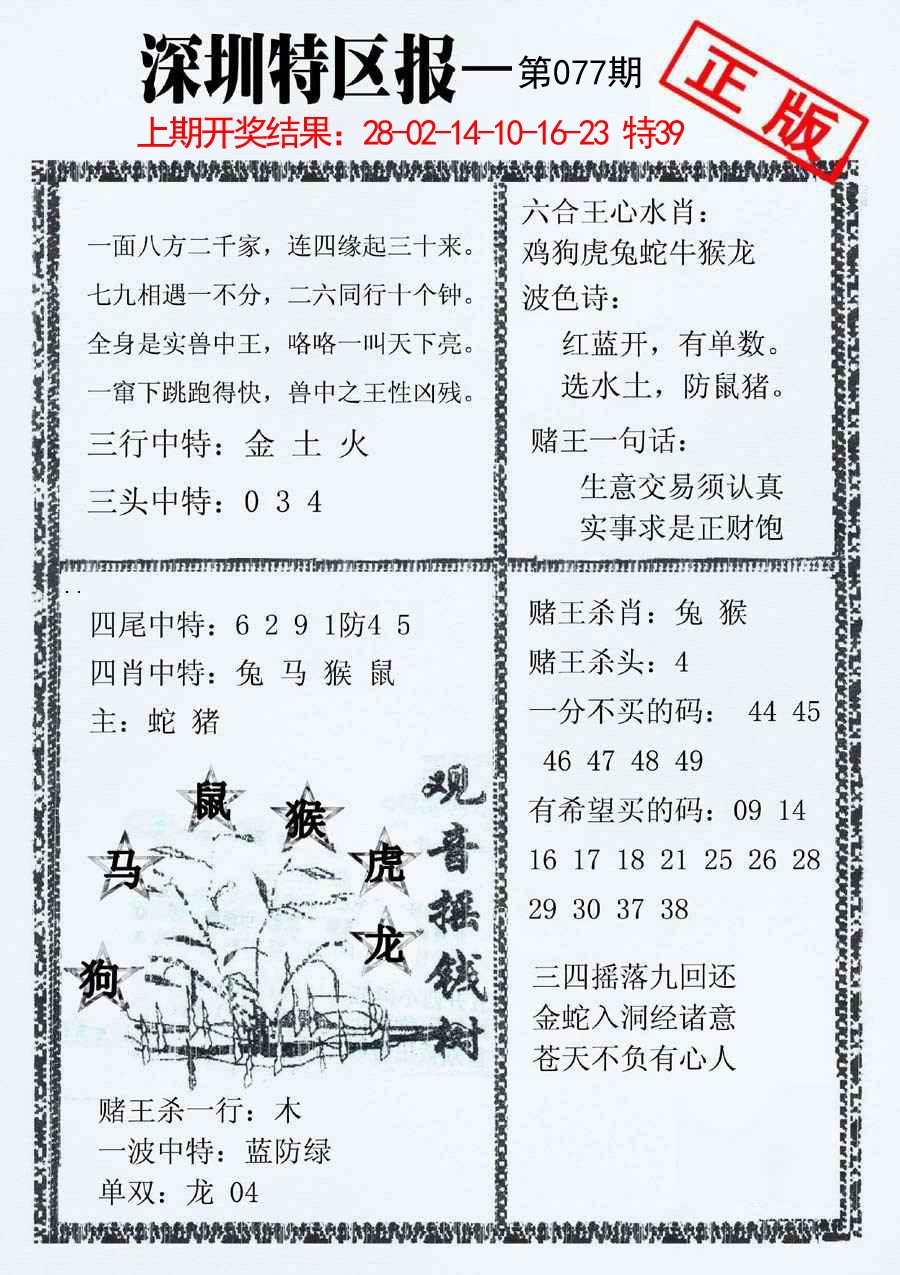 深圳特区报—第077期
正版
上期开奖结果：28-02-14-10-16-23 特39
一面八方二千家，连四缘起三十来。
七九相遇一不分，二六同行十个钟。
全身是实兽中王，咯咯一叫天下亮。
一窜下跳跑得快，兽中之王性凶残。
三行中特：金 土 火
三头中特：0 3 4
六合王心水肖：
鸡狗虎兔蛇牛猴龙
波色诗：
红蓝开，有单数。
选水土，防鼠猪。
赌王一句话：
生意交易须认真
实事求是正财饱
四尾中特：6 2 9 1防4 5
四肖中特：兔 马 猴 鼠
主：蛇 猪
鼠
猴
马
虎
龙
狗
观音摇钱树
赌王杀一行：木
一波中特：蓝防绿
单双：龙 04
赌王杀肖：兔 猴
赌王杀头：4
一分不买的码： 44 45
46 47 48 49
有希望买的码：09 14
16 17 18 21 25 26 28
29 30 37 38
三四摇落九回还
金蛇入洞经诸意
苍天不负有心人